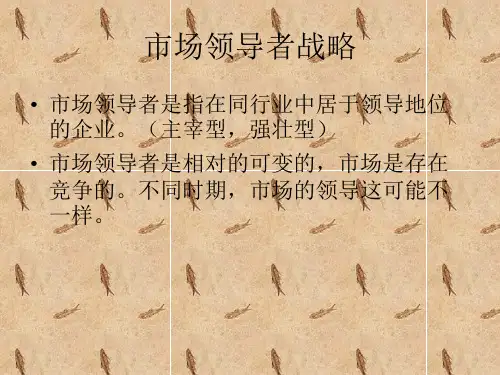 市场领导者战略
• 市场领导者是指在同行业中居于领导地位
的企业。（主宰型，强壮型）
• 市场领导者是相对的可变的，市场是存在
竞争的。不同时期，市场的领导这可能不
一样。